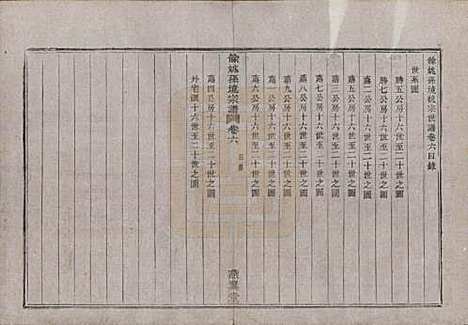 餘姚孫境宗譜卷六目錄
世系圖
勝五公房十六世至二十世之圖
勝七公房十六世至二十世之圖
嘉二公房十六世至二十世之圖
嘉五公房十六世至二十世之圖
嘉七公房十六世至二十世之圖
嘉九公房十六世至二十世之圖
嘉一公房十六世至二十世之圖
嘉六公房十六世至二十世之圖
餘姚孫境宗譜 卷六 目錄 燕翼堂
嘉四公房十六世至二十世之圖
外宅派十六世至二十世之圖